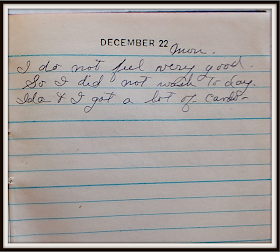 DECEMBER 22 Mon.
I do not feel very good.
So I did not wash to day.
Ida & I got a lot of cards-